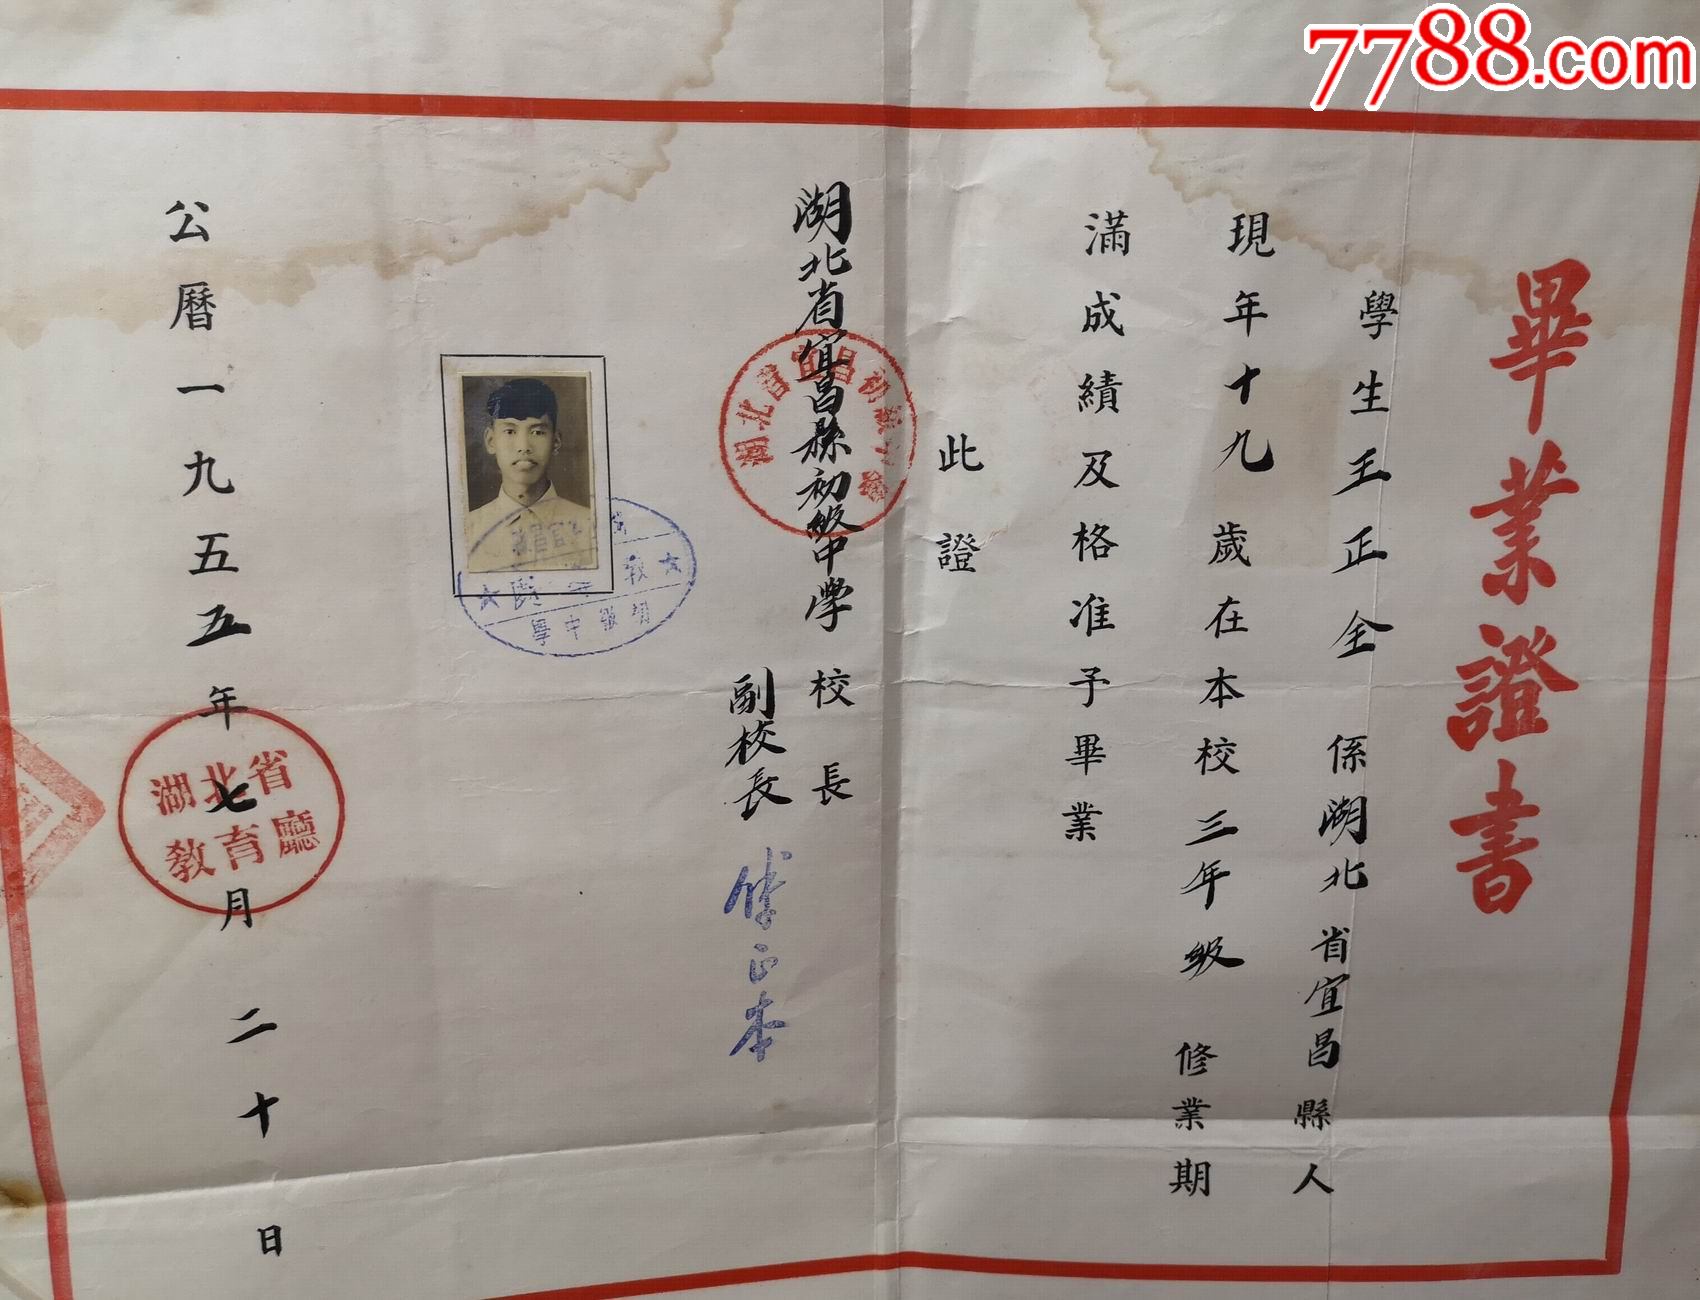 7788.com
畢業證書
學生王正全係湖北省宜昌縣人
現年十九歲在本校三年級修業期
滿成績及格准予畢業
此證
湖北省宜昌縣初級中學校長
副校長
正本
公曆一九五五年七月二十日
湖北省
教育廳
湖北省宜昌初級中學
初級中學